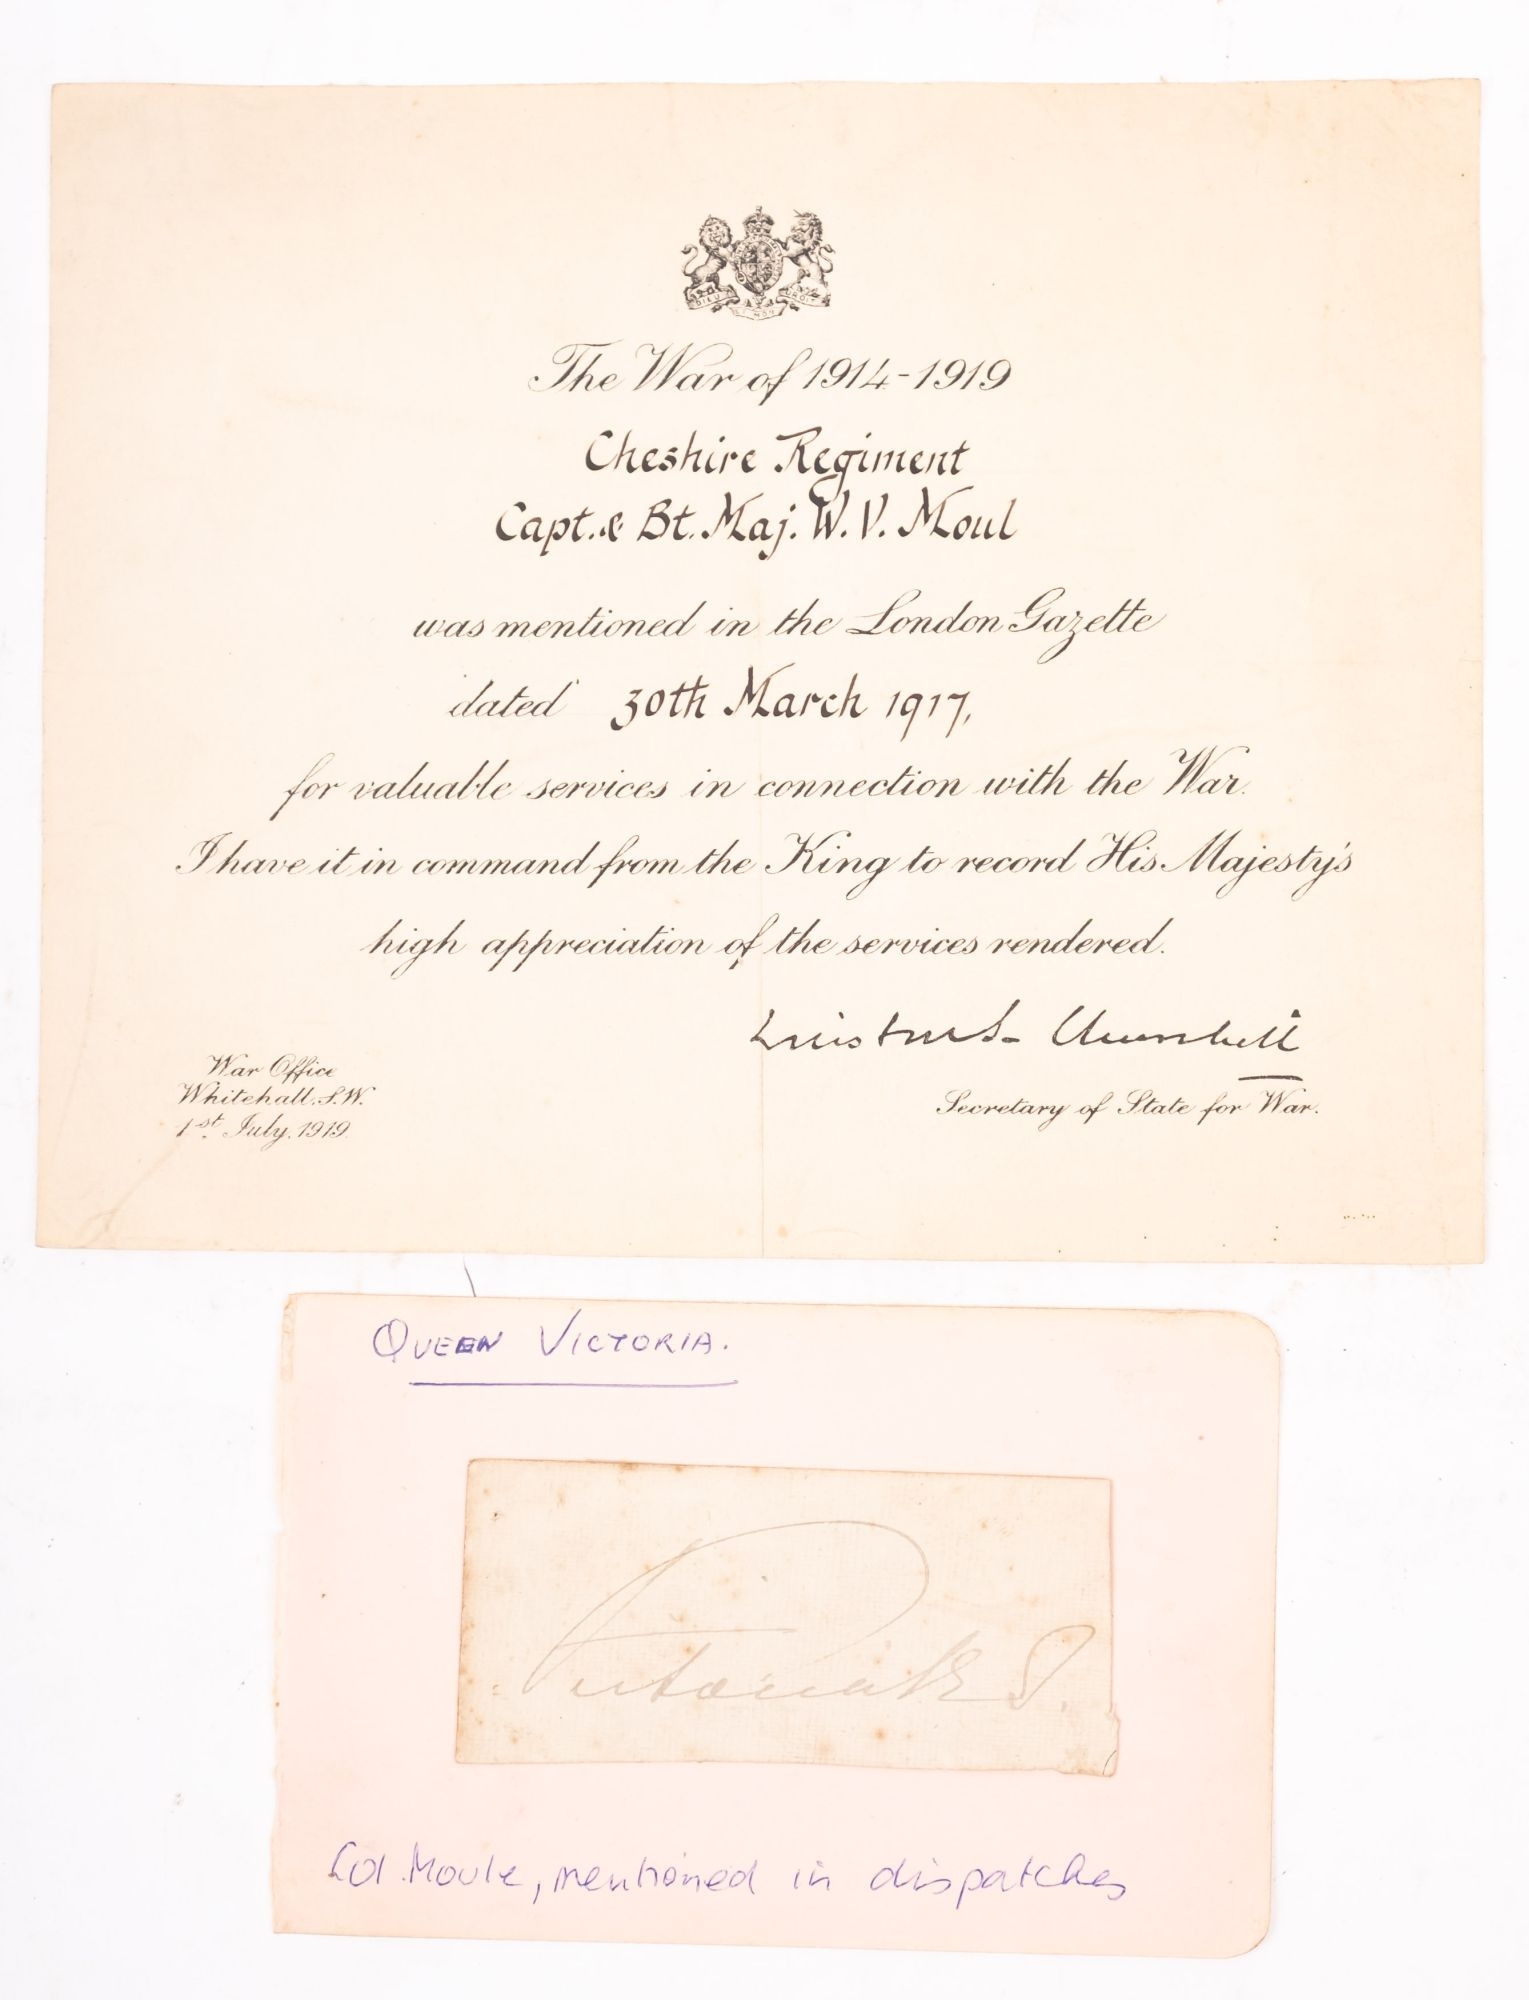 DIEU ET MON DROIT
The War of 1914-1919
Cheshire Regiment
Capt. & Bt. Maj. W. V. Moul
was mentioned in the London Gazette
dated 30th March 1917,
for valuable services in connection with the War.
I have it in command from the King to record His Majesty's
high appreciation of the services rendered.
Winston S. Churchill
Secretary of State for War.
War Office
Whitehall, S.W.
1st. July, 1919.
QUEEN VICTORIA.
Victoria R I
Col. Moule, mentioned in dispatches